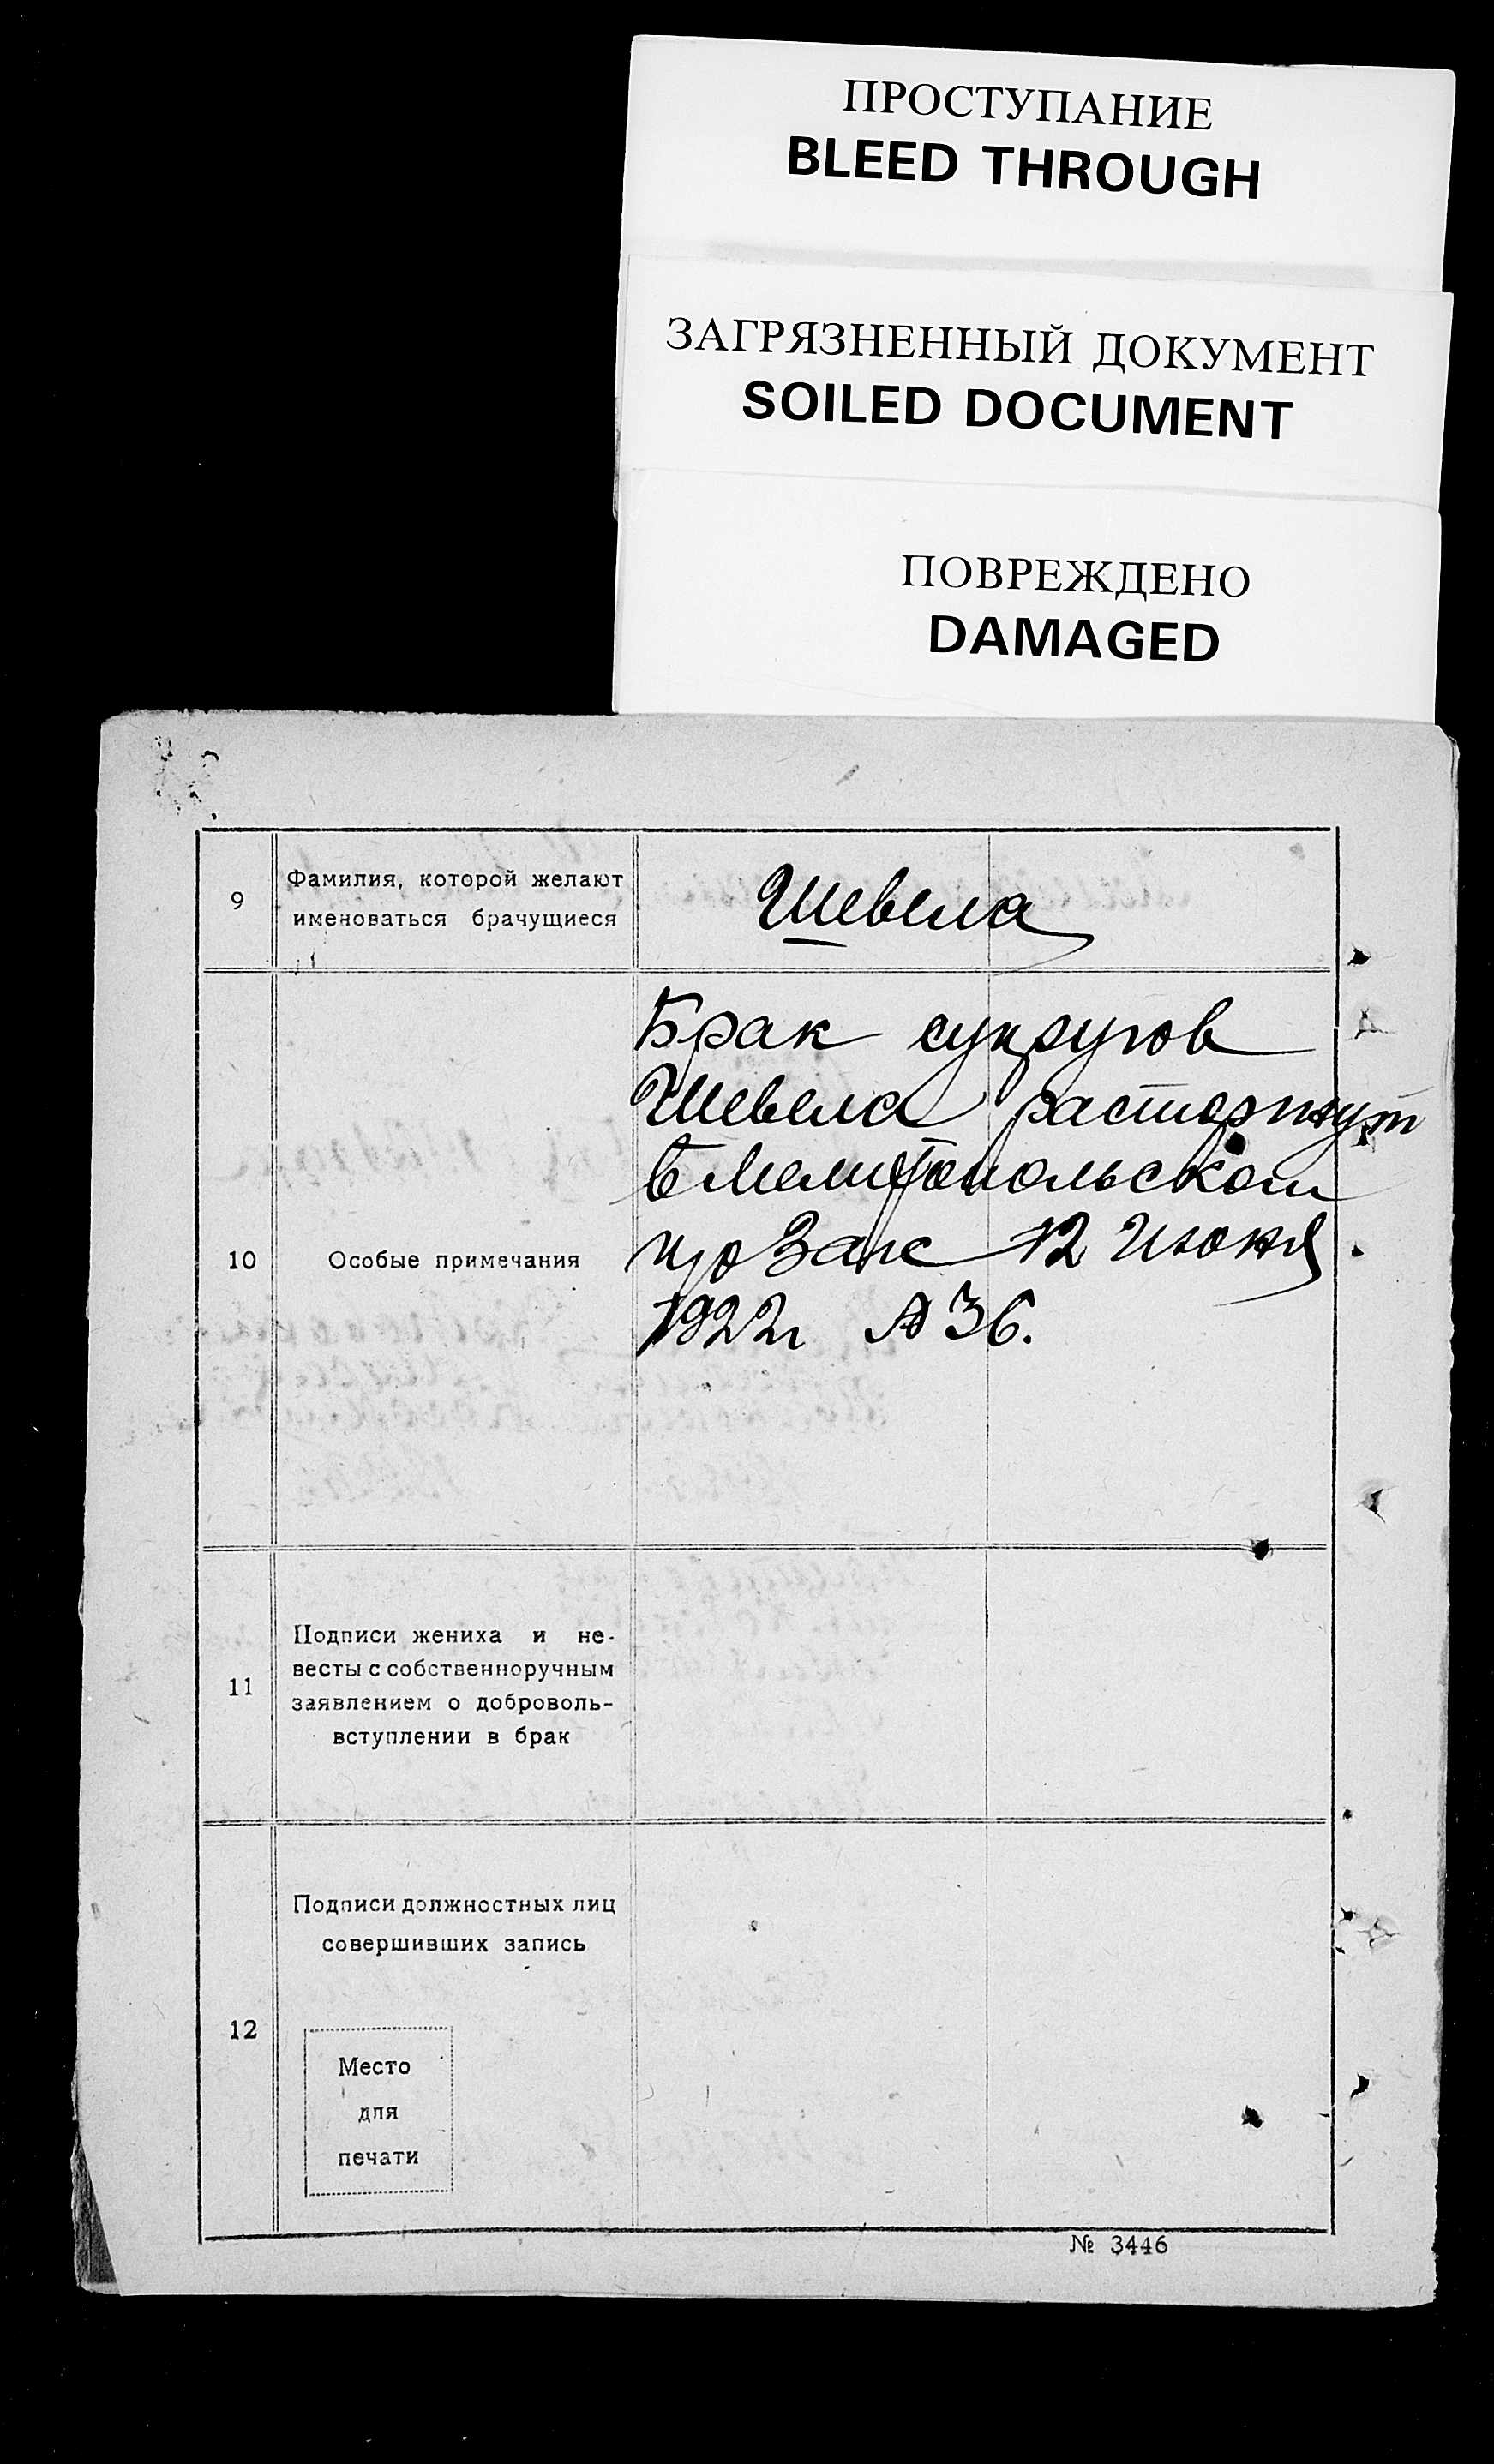 ПРОСТУПАНИЕ
BLEED THROUGH
ЗАГРЯЗНЕННЫЙ ДОКУМЕНТ
SOILED DOCUMENT
ПОВРЕЖДЕНО
DAMAGED
9
Фамилия, которой желают
именоваться брачущиеся
Шевела
10
Особые примечания
Брак супругов
Шевела расторгнут
в Мелитопольском
Загс 12 Июня
1922г № 36.
11
Подписи жениха и не-
весты с собственноручным
заявлением о доброволь-
вступлении в брак
12
Подписи должностных лиц
совершивших запись
Место
для
печати
№ 3446